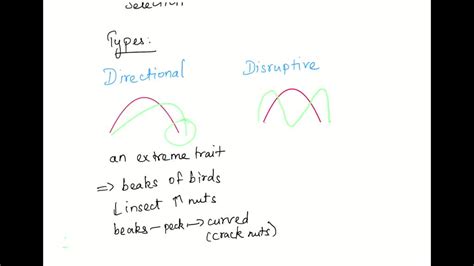 selection
Types:
Directional Disruptive
an extreme trait
=> beaks of birds
↓insect ↑ nuts
beaks - peck -> curved
(crack nuts)